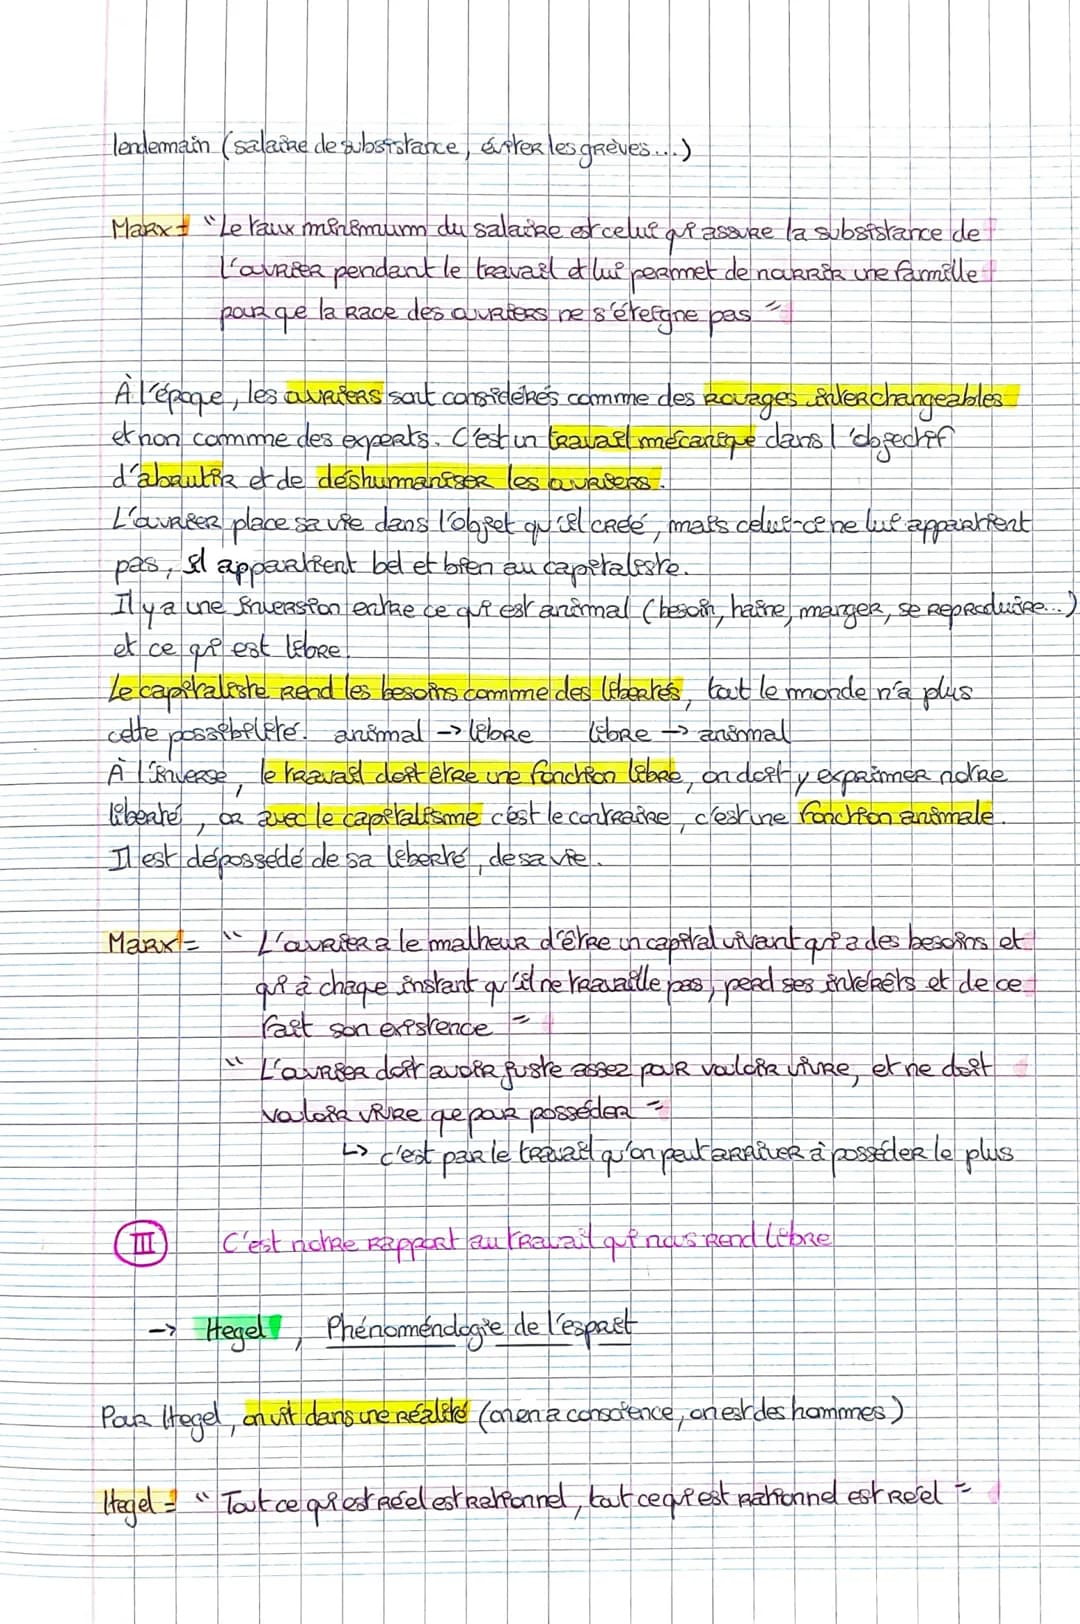 lendemain (salaire de subsistance, éviter les grèves...)
Marx = "Le taux minimum du salaire est celui qui assure la subsistance de
l'ouvrier pendant le travail et lui permet de nourrir une famille
pour que la race des ouvriers ne s'éteigne pas"
À l'époque, les ouvriers sont considérés comme des rouages interchangeables
et non comme des experts. C'est un travail mécanique dans l'objectif
d'aboutir et de déshumaniser les ouvriers.
L'ouvrier place sa vie dans l'objet qu'il créé, mais celui-ci ne lui appartient
pas, il appartient bel et bien au capitaliste.
Il y a une inversion entre ce qui est animal (besoin, haine, manger, se reproduire...)
et ce qui est libre.
Le capitaliste rend les besoins comme des libertés, tout le monde n'a plus
cette possibilité. animal -> libre libre -> animal
À l'inverse, le travail doit être une fonction libre, on doit y exprimer notre
liberté, or avec le capitalisme c'est le contraire, c'est une fonction animale.
Il est dépossédé de sa liberté, de sa vie.
Marx = "L'ouvrier a le malheur d'être un capital vivant qui a des besoins et
qui à chaque instant qu'il ne travaille pas, perd ses intérêts et de ce
fait son existence"
"L'ouvrier doit avoir juste assez pour vouloir vivre, et ne doit
vouloir vivre que pour posséder"
↳ c'est par le travail qu'on peut arriver à posséder le plus
III C'est notre rapport au travail qui nous rend libre
-> Hegel, Phénoménologie de l'esprit
Pour Hegel, on vit dans une réalité (on en a conscience, on est des hommes)
Hegel = "Tout ce qui est réel est rationnel, tout ce qui est rationnel est réel"